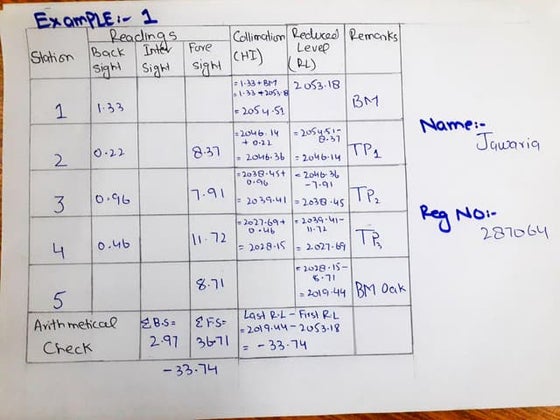 Example:- 1
Station Readings Collimation (HI) Reduced Level (RL) Remarks
Back sight Inter Sight Fore sight
1 1.33 =1.33+BM =1.33+2053.18 =2054.51 2053.18 BM
2 0.22 8.37 =2046.14 +0.22 =2046.36 =2054.51- 8.37 =2046.14 TP1
3 0.96 7.91 =2038.45+ 0.96 =2039.41 =2046.36 -7.91 =2038.45 TP2
4 0.46 11.72 =2027.69+ 0.46 =2028.15 =2039.41- 11.72 =2027.69 TP3
5 8.71 =2028.15- 8.71 =2019.44 BM Oak
Arithmetical Check ΣB.S= 2.97 ΣF.S= 36.71 Last R.L - First R.L =2019.44-2053.18 = -33.74
-33.74
Name:-
Jawaria
Reg No:-
287064